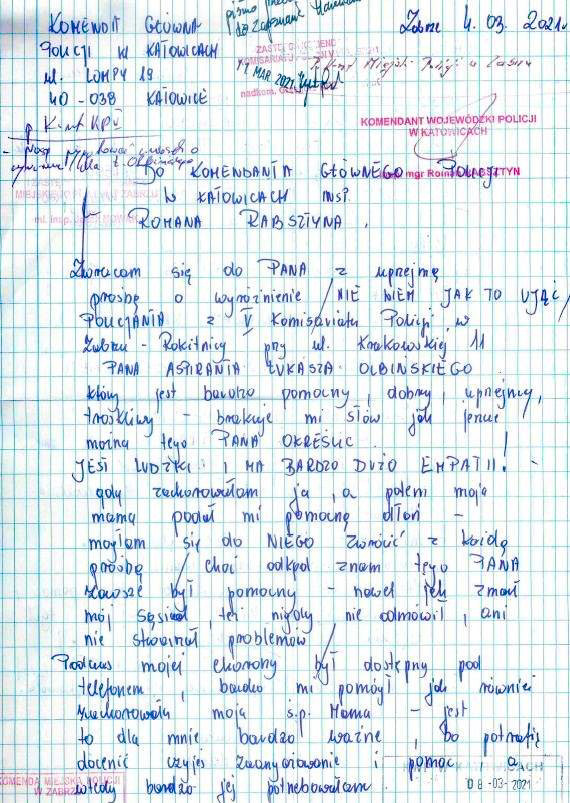 KOMENDA GŁÓWNA
POLICJI W KATOWICACH
ul. LOMPY 19
40-038 KATOWICE
Zabrze 4.03.2021r
ZASTĘPCA KOMENDANTA
KOMISARIATU POLICJI V
11 MAR. 2021
Kmt Miejski Policji w Zabrzu
KOMENDANT WOJEWÓDZKI POLICJI
W KATOWICACH
insp. mgr Roman RABSZTYN
DO KOMENDANTA GŁÓWNEGO POLICJI
W KATOWICACH INSP.
ROMANA RABSZTYNA.
Zwracam się do PANA z uprzejmą
prośbą o wyróżnienie / NIE WIEM JAK TO UJĄĆ /
POLICJANTA z V Komisariatu Policji w
Zabrzu - Rokitnicy przy ul. Krakowskiej 11
PANA ASPIRANTA ŁUKASZA OLBIŃSKIEGO
który jest bardzo pomocny, dobry, uprzejmy,
troskliwy - brakuje mi słów jak jeszcze
można tego PANA OKREŚLIĆ.
JEST LUDZKI I MA BARDZO DUŻO EMPATII! -
gdy zachorowałam ja, a potem moja
mama podał mi pomocną dłoń -
mogłam się do NIEGO zwrócić z każdą
prośbą, choć odkąd znam tego PANA
zawsze był pomocny - nawet jak zmarł
mój sąsiad, też nigdy nie odmówił, ani
nie stwarzał problemów
Podczas mojej choroby był dostępny pod
telefonem, bardzo mi pomógł jak również
zachorowała moja ś.p. Mama - jest
to dla mnie bardzo ważne, bo potrafię
docenić czyjeś zaangażowanie i pomoc, a
wtedy bardzo jej potrzebowałam.
KOMENDA MIEJSKA POLICJI
W ZABRZU
W KATOWICACH
08-03-2021